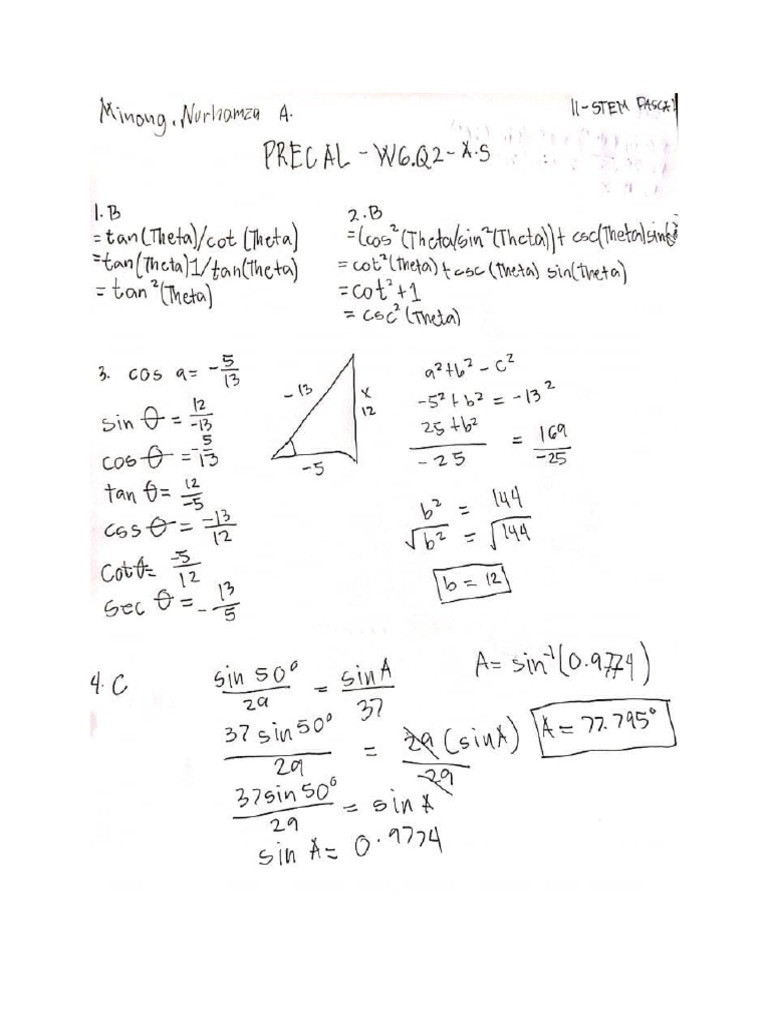 Minong, Nurhamza A.
11-STEM PASCAL
PRECAL - W6.Q2 - A.S
1. B
= tan(Theta)/cot (Theta)
= tan(Theta) 1/tan(Theta)
= tan²(Theta)
2. B
= (cos²(Theta/sin²(Theta)) + csc(Theta)sin(
= cot²(Theta) + csc (Theta) sin(theta)
= cot² + 1
= csc² (Theta)
3. cos a = -5/13
sin θ = 12/-13
cos θ = -5/13
tan θ = 12/-5
css θ = -13/12
cot θ = -5/12
sec θ = -13/5
-13
x
12
-5
a² + b² - c²
-5² + b² = -13²
25 + b² = 169
-25 -25
b² = 144
√b² = √144
b = 12
4. C
sin 50°/29 = sin A/37
37 sin 50°/29 = 29 (sin A)/29
37 sin 50°/29 = sin A
sin A = 0.9774
A = sin⁻¹(0.9774)
A = 77.795°